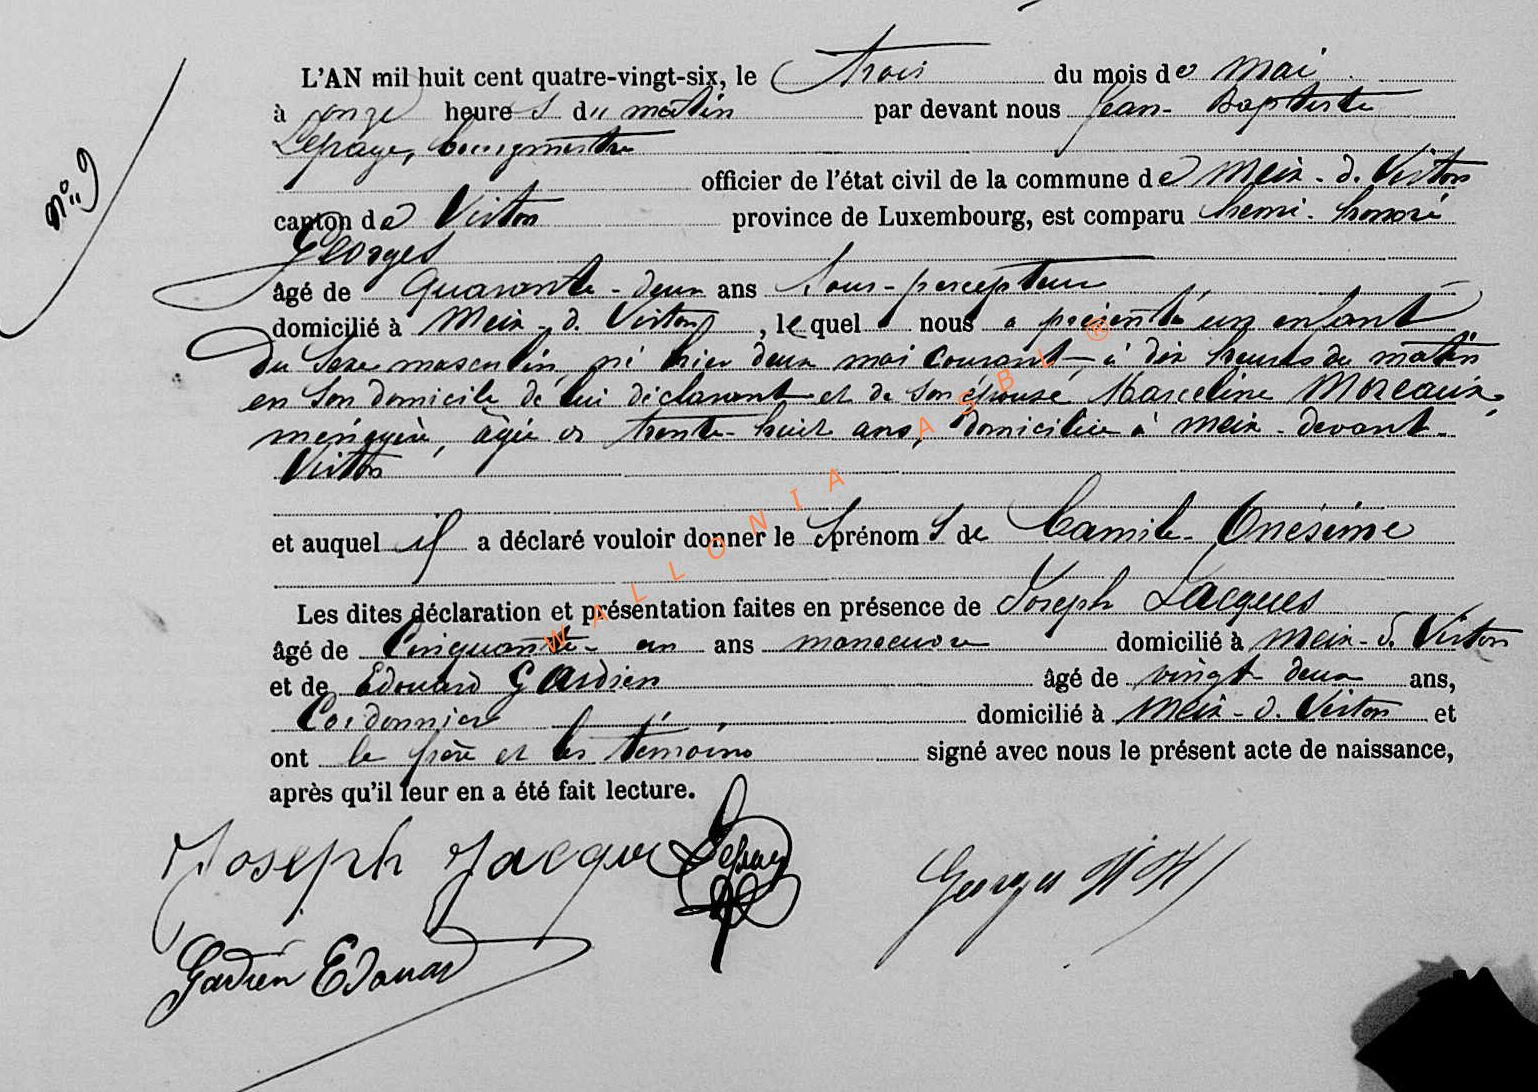 n° 9
L'AN mil huit cent quatre-vingt-six, le trois du mois de mai
à onze heures du matin par devant nous Jean-Baptiste
Lepage, bourgmestre
officier de l'état civil de la commune de Meix-d. Virton
canton de Virton province de Luxembourg, est comparu henri-honoré
Georges
âgé de quarante-deux ans Sous-percepteur
domicilié à Meix-d. Virton, lequel nous a présenté un enfant
du sexe masculin, né hier deux mai courant à dix heures du matin
en son domicile de lui déclarant et de son épouse Marceline Moreaux,
ménagère, âgée de trente-huit ans, domiciliée à meix-devant-
Virton
et auquel il a déclaré vouloir donner les prénoms de Camile-Onésime
Les dites déclaration et présentation faites en présence de Joseph Jacques
âgé de Cinquante-un ans manoeuvre domicilié à Meix-d. Virton
et de Edouard Gardien âgé de vingt deux ans,
Cordonnier domicilié à Meix-d. Virton et
ont le père et les témoins signé avec nous le présent acte de naissance,
après qu'il leur en a été fait lecture.
Joseph Jacques Lepage Georges H H
Gardien Edouard
WALLONIA ASBL ®